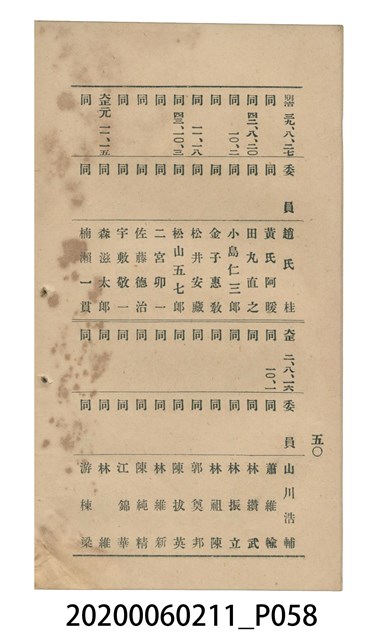 明治三九、八、二七 委員 趙氏桂
同 同 黃氏阿暖
同四二、八、二〇 同 田丸直之
同 一〇、二 同 小島仁三郎
同 同 金子惠敎
同 一一、一八 同 松井安藏
同四三、一〇、三 同 松山五七郎
同 同 二宮卯一
同 同 佐藤德治
同 同 宇敷敬一
大正元、一一、一五 同 森滋太郎
同 同 楠瀨一貫
大正二、八、一六 委員 山川浩輔
同 一〇、一 同 蕭維翰
同 同 林纘武
同 同 林振立
同 同 林祖陳
同 同 郭邦
同 同 陳拔英
同 同 林維新
同 同 陳純精
同 同 江錦華
同 同 林維
同 同 游棟梁
五〇
20200060211_P058